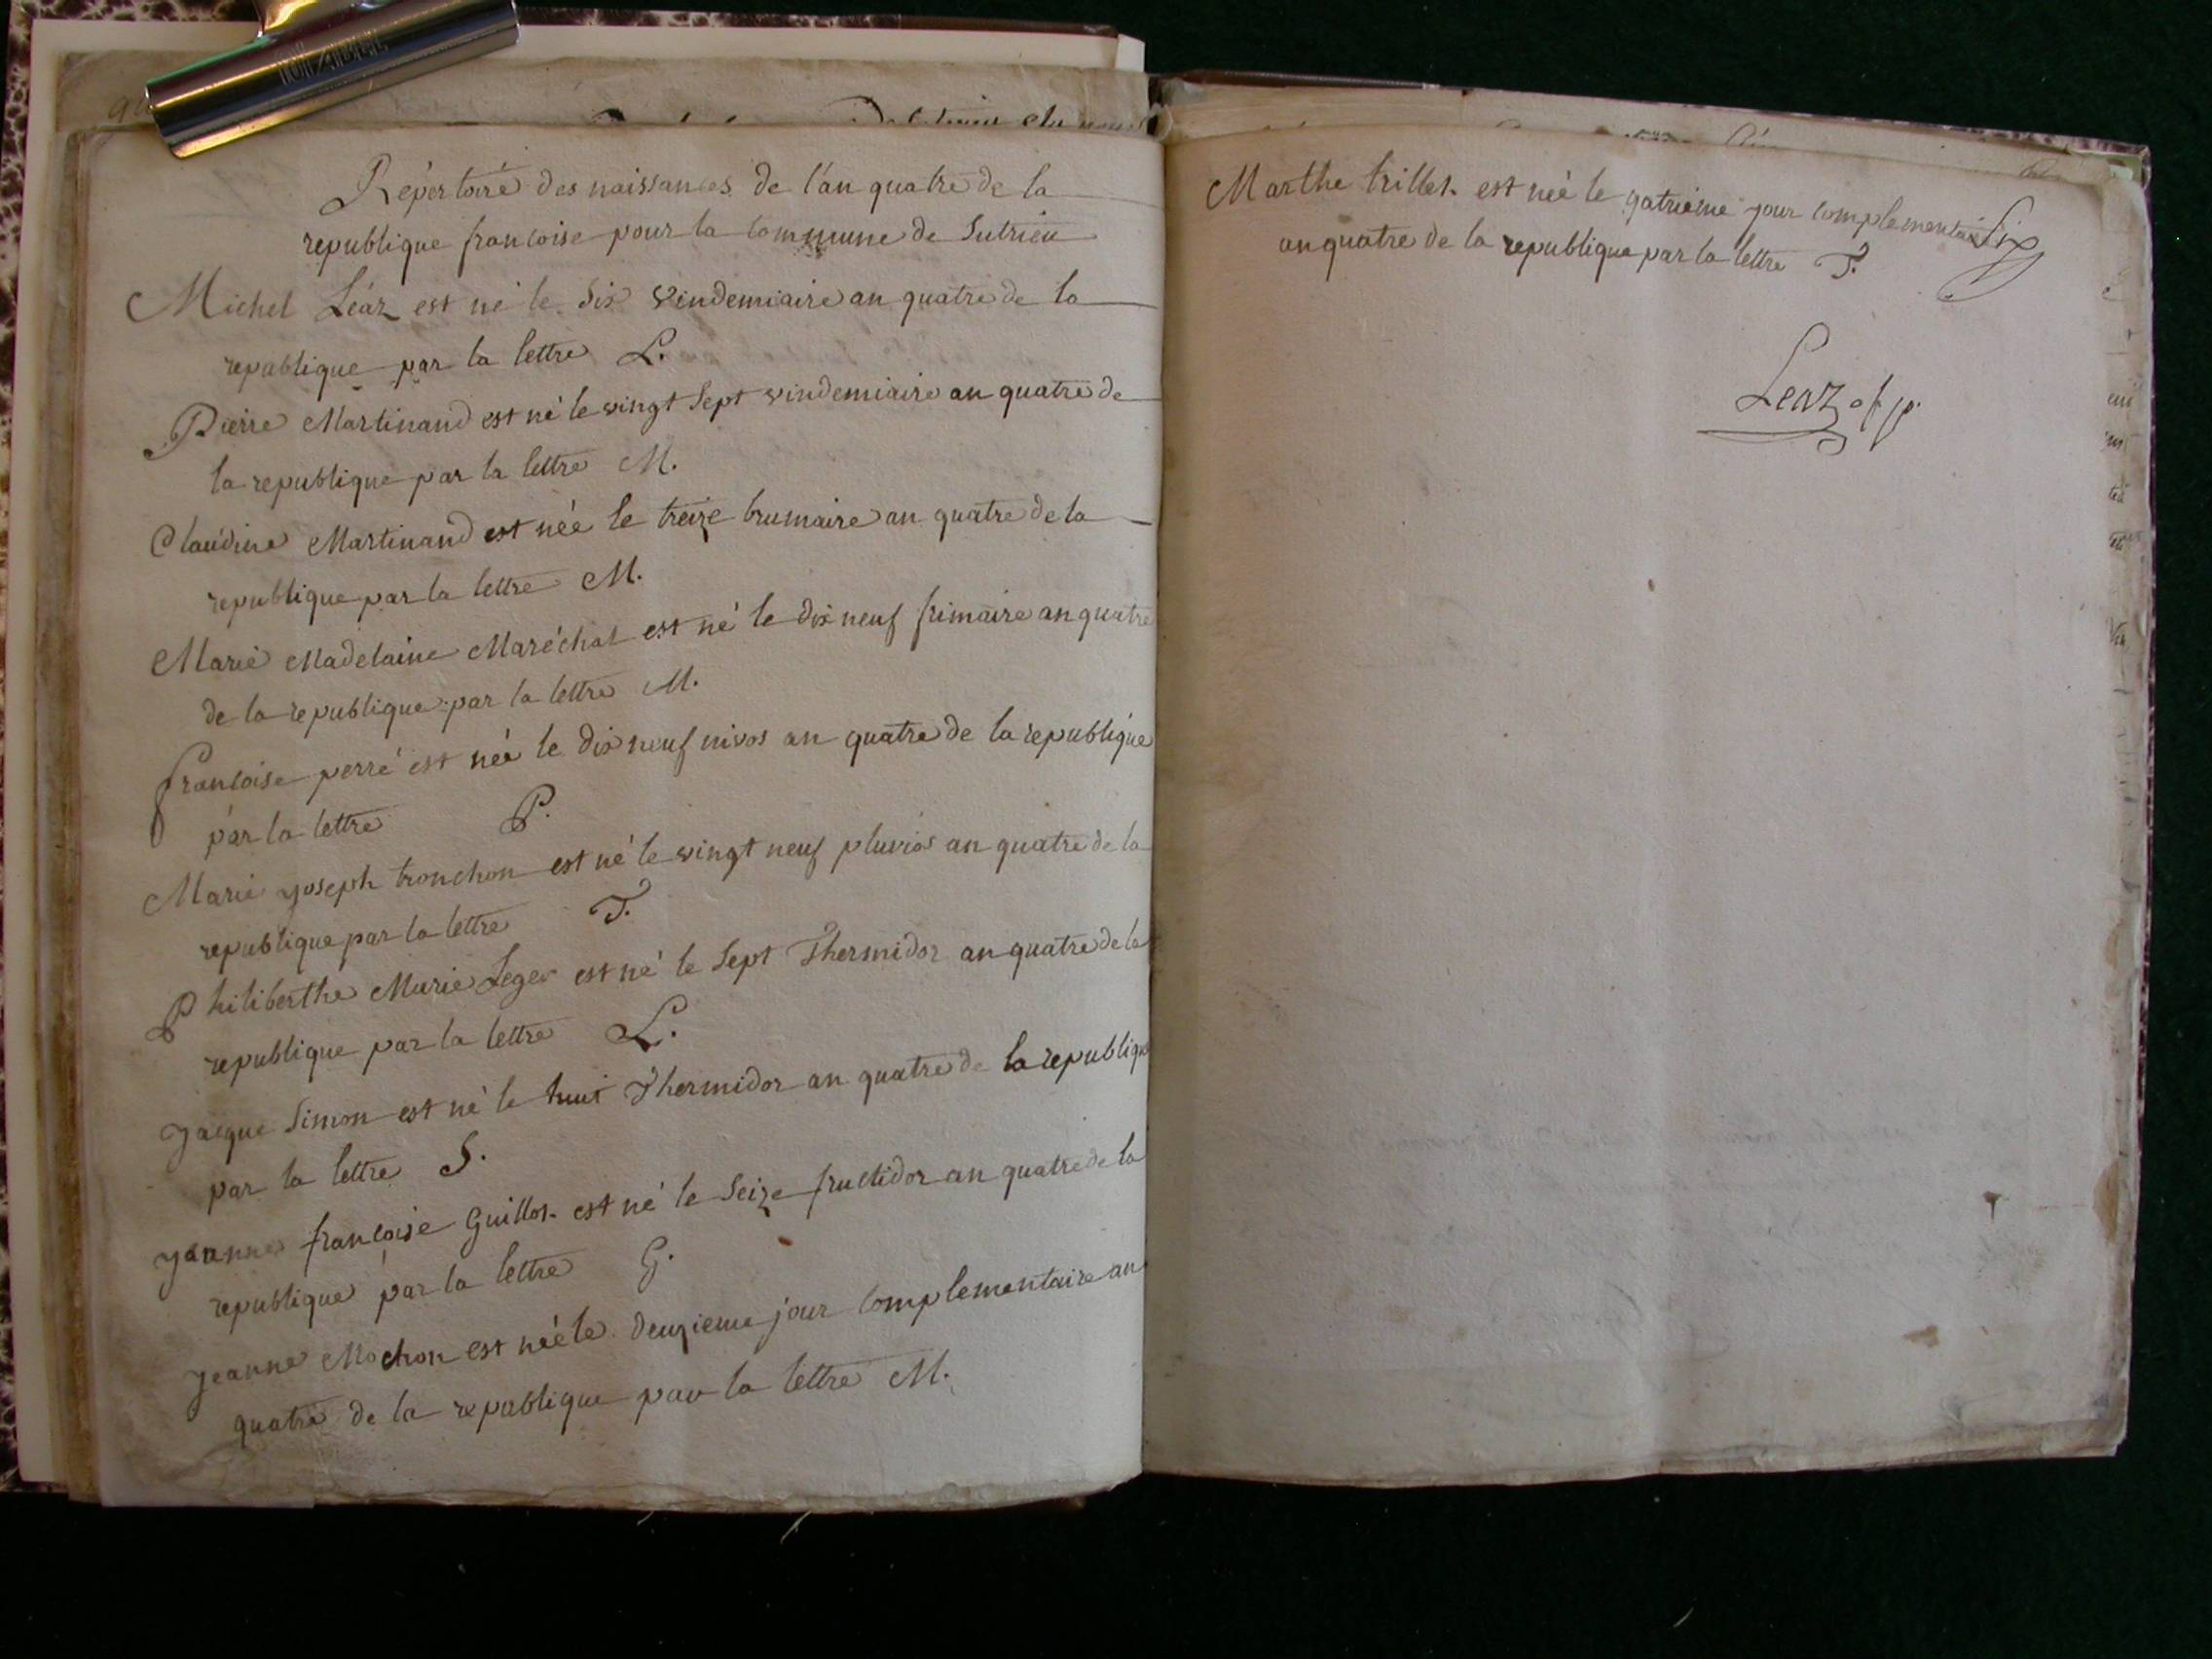 Répertoire des naissances de l'an quatre de la
republique francoise pour la commune de Sutrieu
Michel Léaz est né le Six vindemiaire an quatre de la
republique par la lettre L.
Pierre Martinand est né le vingt Sept vindemiaire an quatre de
la republique par la lettre M.
Claudine Martinand est née le treize brumaire an quatre de la
republique par la lettre M.
Marie Madelaine Maréchal est né le dix neuf frimaire an quatre
de la republique par la lettre M.
francoise perré est née le dix neuf nivos an quatre de la republique
par la lettre P.
Marie joseph tronchon est né le vingt neuf pluvios an quatre de la
republique par la lettre T.
Philiberthe Marie Leger est né le Sept Thermidor an quatre de la
republique par la lettre L.
jacque Simon est né le huit Thermidor an quatre de la republique
par la lettre S.
jeanne francoise Guillot est né le Seize fructidor an quatre de la
republique par la lettre G.
jeanne Mochon est née le deuzieme jour complementaire an
quatre de la republique par la lettre M.
Marthe trillet est née le qatrieme jour complementaire Six
an quatre de la republique par la lettre T.
Leaz